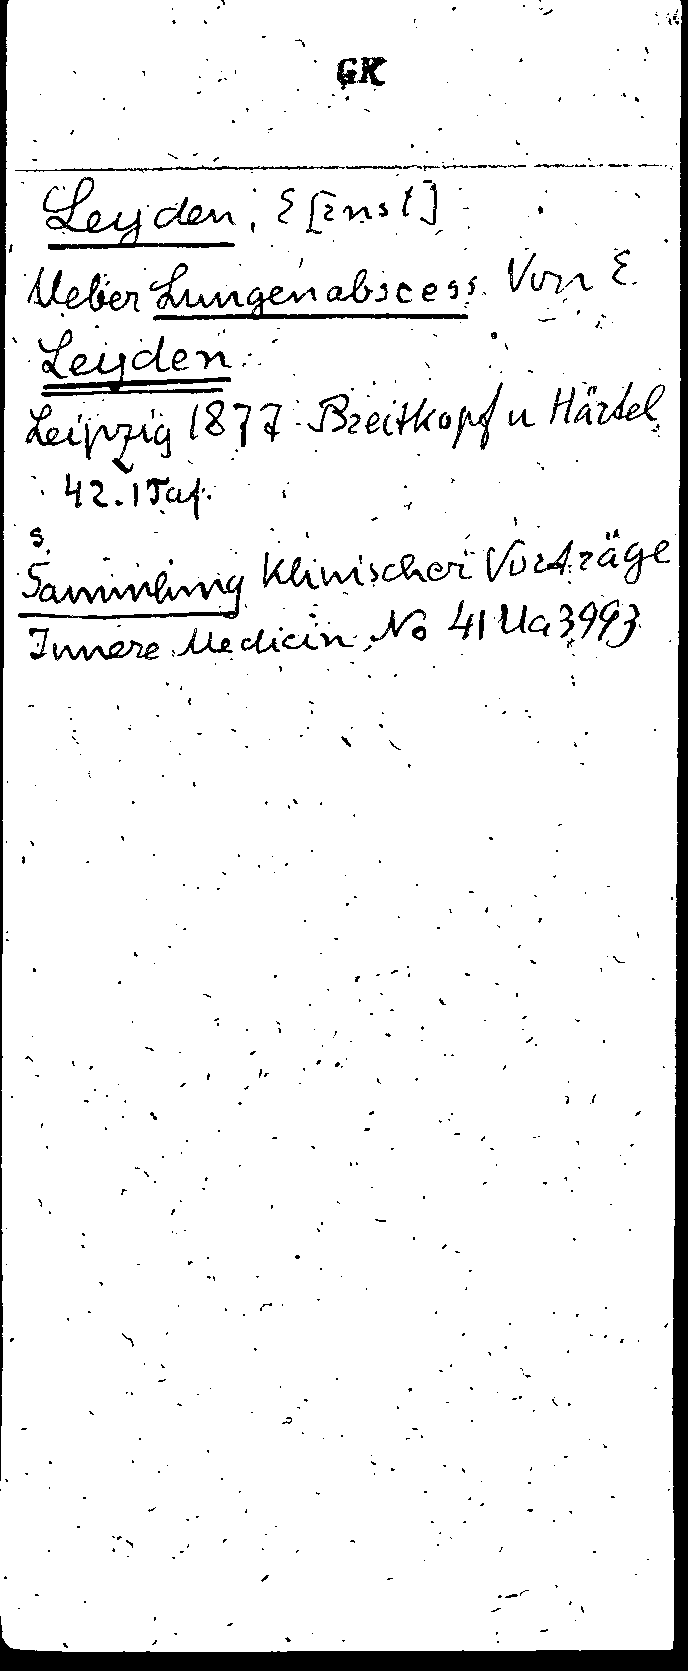 GK
Leyden, E[rnst]
Ueber Lungenabscess. Von E.
Leyden.
Leipzig 1877 Breitkopf u Härtel
42. 1 Taf.
s.
Sammlung Klinischer Vorträge
Innere Medicin, No 41 Ua 3993